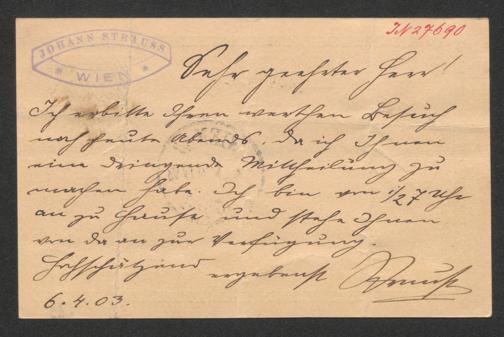 JN 27690
JOHANN STRAUSS
* WIEN *
Sehr geehrter Herr!
Ich erbitte Ihren werthen Besuch
noch heute Abends, da ich Ihnen
eine dringende Mittheilung zu
machen habe. Ich bin von 1/27 Uhr
an zu Hause und stehe Ihnen
von da an zur Verfügung.
Hochschätzend ergebenst Strauss
6.4.03.